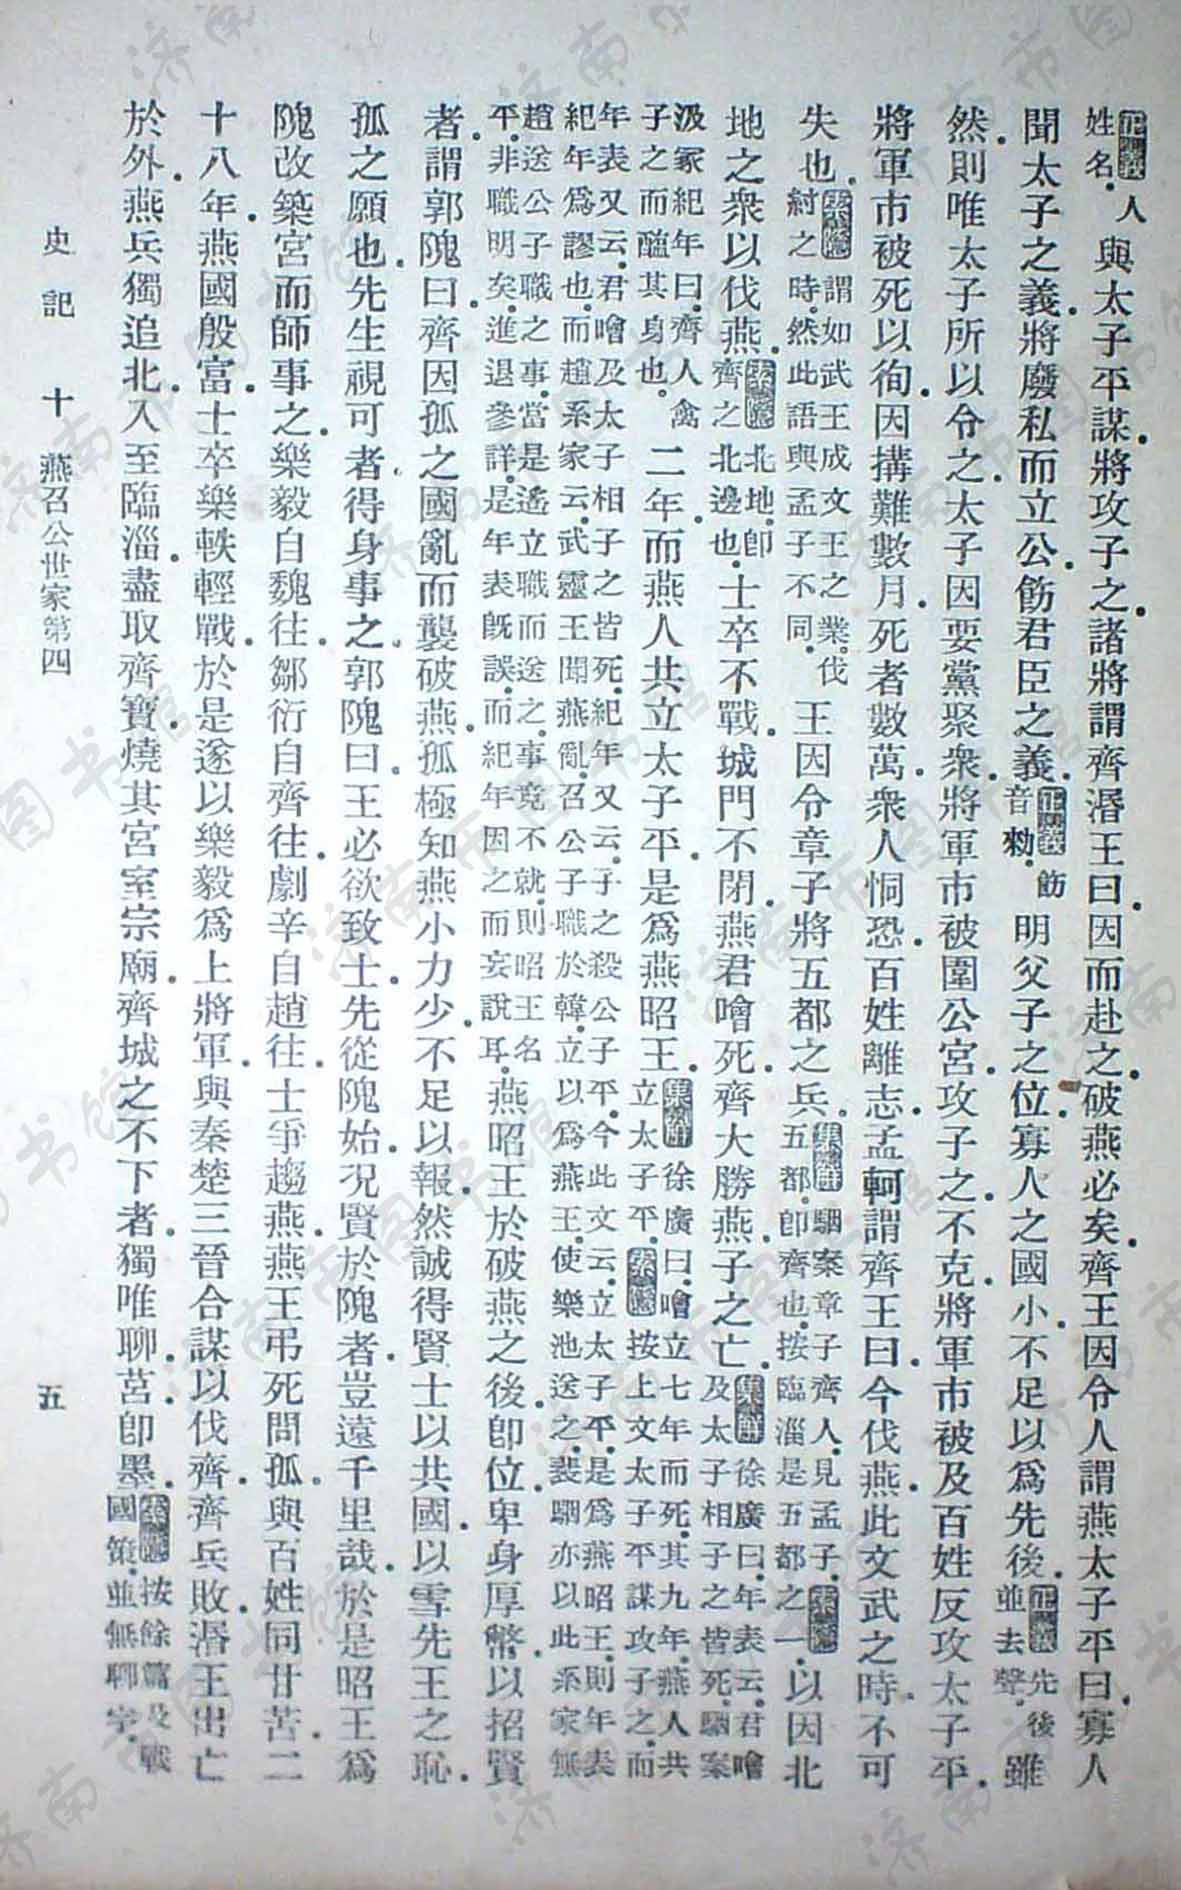 正義人姓名。與太子平謀。將攻子之。諸將謂齊湣王曰。因而赴之。破燕必矣。齊王因令人謂燕太子平曰。寡人
聞太子之義。將廢私而立公。飭君臣之義。正義飭音勑。明父子之位。寡人之國小。不足以爲先後。正義先後並去聲。雖
然。則唯太子所以令之。太子因要黨聚衆。將軍市被圍公宮。攻子之。不克。將軍市被及百姓反攻太子平。
將軍市被死以徇。因搆難數月。死者數萬。衆人恫恐。百姓離志。孟軻謂齊王曰。今伐燕。此文武之時。不可
失也。索隱謂如武王成文王之業。伐紂之時。然此語與孟子不同。王因令章子將五都之兵。集解駰案章子齊人。見孟子。索隱五都。卽齊也。按臨淄是五都之一。以因北
地之衆以伐燕。索隱北地。卽齊之北邊也。士卒不戰。城門不閉。燕君噲死。齊大勝燕。子之亡。集解徐廣曰。年表云。君噲及太子相子之皆死。駰案
汲冢紀年曰。齊人禽子之而醢其身也。二年。而燕人共立太子平。是爲燕昭王。集解徐廣曰。噲立七年而死。其九年。燕人共立太子平。索隱按上文太子平謀攻子之。而
年表又云。君噲及太子相子之皆死。紀年又云。子之殺公子平。今此文云。立太子平。是爲燕昭王。則年表
紀年爲謬也。而趙系家云。武靈王聞燕亂。召公子職於韓。立以爲燕王。使樂池送之。裴駰亦以此系家無
趙送公子職之事。當是遙立職而送之。事竟不就。則昭王名平。非職明矣。進退參詳。是年表旣誤。而紀年因之而妄說耳。燕昭王於破燕之後。卽位。卑身厚幣。以招賢
者。謂郭隗曰。齊因孤之國亂而襲破燕。孤極知燕小力少。不足以報。然誠得賢士以共國。以雪先王之恥。
孤之願也。先生視可者。得身事之。郭隗曰。王必欲致士。先從隗始。况賢於隗者。豈遠千里哉。於是昭王爲
隗改築宮而師事之。樂毅自魏往。鄒衍自齊往。劇辛自趙往。士爭趨燕。燕王弔死問孤。與百姓同甘苦。二
十八年。燕國殷富。士卒樂軼輕戰。於是遂以樂毅爲上將軍。與秦楚三晉合謀以伐齊。齊兵敗。湣王出亡
於外。燕兵獨追北。入至臨淄。盡取齊寶。燒其宮室宗廟。齊城之不下者。獨唯聊。莒。卽墨。索隱按餘篇及戰國策。並無聊字。
史記 十 燕召公世家第四 五